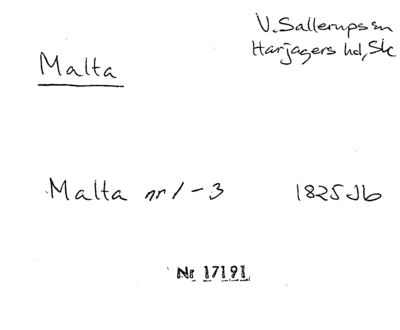 V. Sallerups sn
Harjagers hd, Sk
Malta
Malta nr 1-3 1825 Jb
Nr 17191